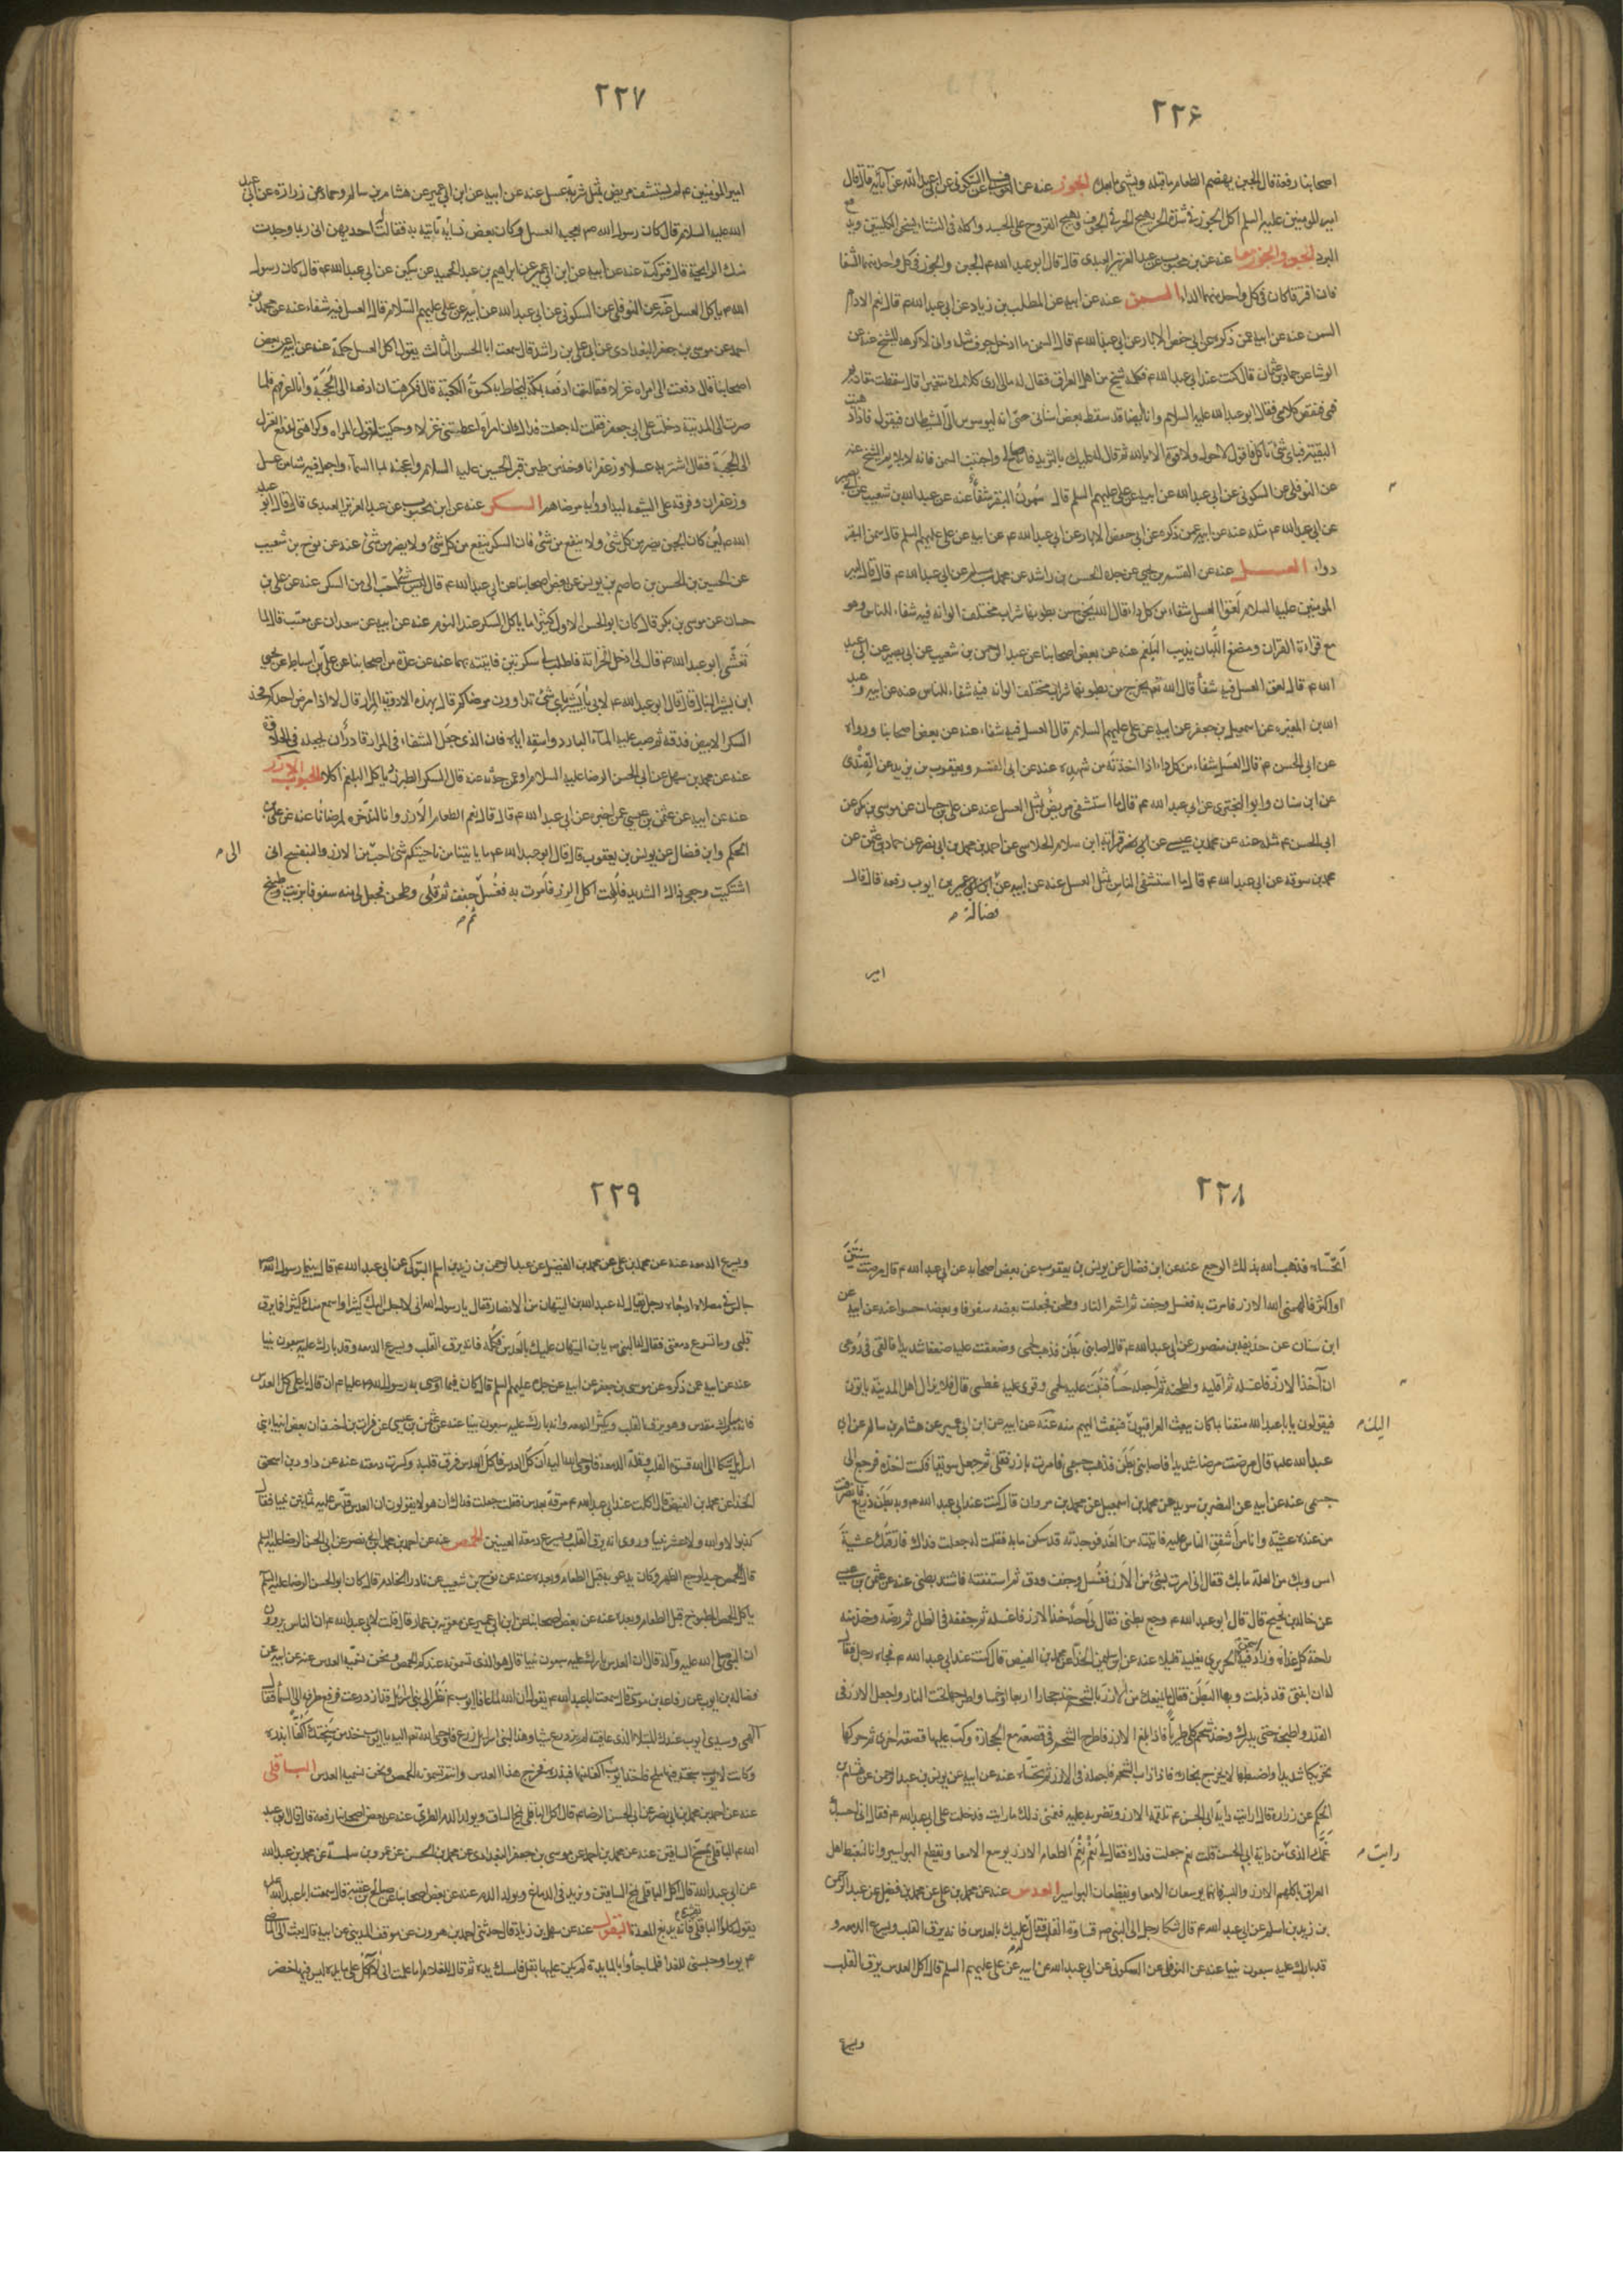 ٢٢۶
اصحابنا رفعه قال الجبن يهضم الطعام ما قبله ويشهى ما بعده الجوز عنه عن النوفلى عن السكونى عن ابى عبد الله عن آبائه قال قال
امير المومنين عليه السلم اكل الجوز فى شدة الحر يهيج الحر فى الجوف ويهيج القروح على الجسد واكله فى الشتاء يسخن الكليتين ويدفع
البرد الجبن والجوز معا عنه عن بن محبوب عن عبد العزيز العبدى قال قال ابو عبد الله ع الجبن والجوز فى كل واحد منهما الشفا
فان افترقا كان فى كل واحد منهما الداء السمن عنه عن ابيه عن المطلب بن زياد عن ابى عبد الله ع قال نعم الادام
السمن عنه عن ابيه عن ذكره عن ابى حفص الابار عن ابى عبد الله ع قال السمن ما ادخل جوف مثله وانى لاكرهه للشيخ عنه عن
الوشا عن حماد بن عثمان قال كنت عند ابى عبد الله ع فكلمه شيخ من اهل العراق فقال له مالى ارى كلامك متغيرا قال سقطت مقاديم
فمى فنقص كلامى فقال ابو عبد الله عليه السلام وانا ايضا قد سقط بعض اسنانى حتى انه ليوسوس الى الشيطان فيقول فاذا ذهبت
البقية فباى شئ تاكل فاقول لا حول ولا قوة الا بالله ثم قال له عليك بالثريد فانه صالح واجتنب السمن فانه لا يلايم الشيخ عنه
عن النوفلى عن السكونى عن ابى عبد الله عن ابيه عن على عليهم السلم قال سمون البقر شفاء عنه عن عبد الله بن شعيب عن ابى بصير
عن ابى عبد الله ع مثله عنه عن ابيه عن ذكره عن ابى حفص الابار عن ابى عبد الله ع عن ابيه عن على عليهم السلم قال سمن البقر
دواء العسل عنه عن القسم بن يحيى عن جده الحسن بن راشد عن محمد بن مسلم عن ابى عبد الله ع قال قال امير
المومنين عليه السلام لعق العسل شفاء من كل داء قال الله يخرج من بطونها شراب مختلف الوانه فيه شفاء للناس وهو
مع قراءة القران ومضغ اللبان يذيب البلغم عنه عن بعض اصحابنا عن عبد الرحمن بن شعيب عن ابى بصير عن ابى عبد
الله ع قال لعق العسل فيه شفا قال الله تع يخرج من بطونها شراب مختلف الوانه فيه شفاء للناس عنه عن ابيه وعبد
الله بن المغيره عن اسمعيل بن جعفر عن ابيه عن على عليهم السلام قال العسل فيه شفاء عنه عن بعض اصحابنا ورواه
عن ابى الحسن ع قال العسل شفاء من كل داء اذا اخذته من شهده عنه عن ابى القسم ويعقوب بن يزيد عن القندى
عن ابن سنان وابو البخترى عن ابى عبد الله ع قال ما استشفى مريض بمثل العسل عنه عن على بن حسان عن موسى بن بكر عن
ابى الحسن ع مثله عنه عن محمد بن عيسى عن ابى نصر قرابة ابن سلام الحلاسى عن احمد بن محمد بن ابى نصر عن حماد بن عثمن عن
محمد بن سوقه عن ابى عبد الله ع قال ما استشفى الناس بمثل العسل عنه عن ابيه عن ابن ابى عمير بن ايوب رفعه قال قال
فضالة م
امير
٢٢٧
امير المومنين ع لم يستشف مريض بمثل شربة عسل عنه عن ابيه عن ابن ابى عمير عن هشام بن سالم وحماد عن زرارة عن ابى عبد
الله عليه السلام قال كان رسول الله ص يعجبه العسل وكان بعض نسائه تأتيه به فقالت له احديهن انى ربما وجدت
منك الرايحة قال فتركه عنه عن ابيه عن ابن ابى عمير عن ابراهيم بن عبد الحميد عن سكين عن ابى عبد الله ع قال كان رسول
الله ص ياكل العسل عنه عن النوفلى عن السكونى عن ابى عبد الله عن ابيه عن على عليهم السلام قال العسل فيه شفاء عنه عن محمد بن
احمد عن موسى بن جعفر البغدادى عن ابى على بن راشد قال سمعت ابا الحسن الثالث يقول اكل العسل حكمة عنه عن ابيه عن بعض
اصحابنا قال دفعت الى امراه غزلا فقالت ادفعه بمكة ليخاط به كسوة الكعبة قال فكرهت ان ادفعه الى الحجبة وانا اعرفهم فلما
صرت الى المدينة دخلت على ابى جعفر فقلت له جعلت فداك ان امراة اعطتنى غزلا وحكيت له قول المراه وكراهتى لدفع الغزل
الى الحجبة فقال اشتر به عسلا وزعفرانا وخذ من طين قبر الحسين عليه السلام واعجنه بما السماء واجعل فيه شيا من عسل
وزعفران وفرقه على الشيعة ليداووا به مرضاهم السكر عنه عن ابن محبوب عن عبد العزيز العبدى قال قال ابو عبد
الله ع لئن كان الجبن يضر من كل شئ ولا ينفع من شئ فان السكر ينفع من كل شئ ولا يضر من شئ عنه عن نوح بن شعيب
عن الحسين بن الحسن بن عاصم بن يونس عن بعض اصحابنا عن ابى عبد الله ع قال ليس شئ احب الى من السكر عنه عن على بن
حسان عن موسى بن بكر قال كان ابو الحسن الاول كثيرا ما ياكل السكر عند النوم عنه عن ابيه عن سعدان عن معتب قال لما
تعشى ابو عبد الله ع قال لى ادخل الخزانة فاطلب لى سكرتين فاتيته بهما عنه عن عدة من اصحابنا عن على بن اسباط عن يحيى
ابن بشير النبال قال قال ابو عبد الله ع لابى يا بشير باى شئ تداوون مرضاكم قال بهذه الادوية المرار قال لا اذا مرض احدكم فخذ
السكر الابيض فدقه ثم صب عليه الماء البارد واسقه اياه فان الذى جعل الشفاء فى المرار قادر ان يجعله فى الحلاوة
عنه عن محمد بن سهل عن ابى الحسن الرضا عليه السلام او عن حدثه عنه قال السكر الطبرزد ياكل البلغم اكلا الحبوب الارز
عنه عن ابيه عن عثمن بن عيسى عن اخبره عن ابى عبد الله ع قال قال نعم الطعام الارز وانا لندخره لمرضانا عنه عن على بن
الحكم وابن فضال عن يونس بن يعقوب قال قال ابو عبد الله ع ما ياتينا من ناحيتكم شئ احب من الارز والبنفسج انى
الى م
اشتكيت وجعى ذاك الشديد فالهمت اكل الارز فامرت به فغسل جفف ثم قلى وطحن فجعل لى منه سفوفا بزيت وطبيخ
ثم م
٢٢٨
اتحساه فذهب الله بذلك الوجع عنه عن ابن فضال عن يونس بن يعقوب عن بعض اصحابه عن ابى عبد الله ع قال مرضت سنتين
او اكثر فالهمنى الله الارز فامرت به فغسل وجفف ثم اشم النار وطحن فجعلت بعضه سفوفا وبعضه حسوا عنه عن ابيه عن
ابن سنان عن حذيفه بن منصور عن ابى عبد الله ع قال اصابنى بطن فذهب لحمى وضعفت عليه ضعفا شديدا فالقى فى روعى
ان آخذ الارز فاغسله ثم اقليه واطحنه ثم اجعله حسا فنبت عليه لحمى وقوى عليه عظمى قال فلا يزال اهل المدينة ياتون
فيقولون يا با عبد الله متعنا بما كان يبعث العراقيون فبعث اليهم منه عنه عن ابيه عن ابن ابى عمير عن هشام بن سالم عن ابى
اليك م
عبد الله عليه قال مرضت مرضا شديدا فاصابنى بطن فذهب جسمى فامرت بارز فقلى ثم جعل سويقا فكنت اخذه فرجع الى
جسمى عنه عن ابيه عن النضر بن سويد عن محمد بن اسمعيل عن محمد بن مروان قال كنت عند ابى عبد الله ع وبه بطن ذريع فانصرفت
من عنده عشية وانا من اشفق الناس عليه فاتيته من الغد فوجدته قد سكن ما به فقلت له جعلت فداك فارقتك عشية
امس وبك من العلة ما بك فقال انى امرت بشئ من الارز فغسل وجفف ودق ثم استففته فاشتد بطنى عنه عن عثمن بن عيسى
عن خالد بن نجيح قال قال ابو عبد الله ع وجع بطنى فقال لى احد خذ الارز فاغسله ثم جففه فى الظل ثم رضه وخذ منه
راحة كل غداة وزاد فيه اسحق الجريرى تغليه قليلا عنه عن ابى سليمن الحذا عن محمد بن الفيض قال كنت عند ابى عبد الله ع فجاءه رجل فقال
له ان ابنتى قد ذبلت وبها البطن فقال ما يمنعك من الارز بالشحم خذ حجارا اربعا او خمسا واطرحها تحت النار واجعل الارز فى
القدر واطبخه حتى يدرك وخذ شحم كلى طريا فاذا بلغ الارز فاطرح الشحم فى قصعة مع الحجارة وكب عليها قصعة اخرى ثم حركها
تحريكا شديدا واضبطها لا يخرج بخاره فاذا ذاب الشحم فاجعله فى الارز ثم تحساه عنه عن ابيه عن يونس بن عبد الرحمن عن هشام بن
الحكم عن زرارة قال رايت داية ابى الحسن ع تلقمه الارز وتضربه عليه فغمنى ذلك ما رايت فدخلت على ابى عبد الله ع فقال انى احسبك
غمك الذى من داية ابى الحسن قلت نعم جعلت فداك فقال لى نعم نعم الطعام الارز يوسع الامعا ويقطع البواسير وانا لنغبط اهل
رايت م
العراق باكلهم الارز والبسر فانهما يوسعان الامعا ويقطعان البواسير العدس عنه عن محمد بن على عن محمد بن فضيل عن عبد الرحمن
بن زيد بن اسلم عن ابى عبد الله ع قال شكا رجل الى النبى ص قساوة القلب فقال عليك بالعدس فانه يرق القلب ويسرع الدمعه و
قد بارك عليه سبعون نبيا عنه عن النوفلى عن السكونى عن ابى عبد الله عن ابيه عن على عليهم السلم قال اكل العدس يرق القلب
ويسرع
٢٢٩
ويسرع الدمعه عنه عن محمد بن على عن محمد بن الفضيل عن عبد الرحمن بن زيد بن اسلم التبوكى عن ابى عبد الله ع قال بينما رسول الله ص
جالس فى مصلاه اذ جاءه رجل يقال له عبد الله بن التيهان من الانصار فقال يا رسول الله انى لاجلس اليك كثيرا واسمع منك كثيرا فما يرق
قلبى وما تسرع دمعتى فقال له النبى ص يا بن التيهان عليك بالعدس فكله فانه يرق القلب ويسرع الدمعه وقد بارك عليه سبعون نبيا
عنه عن ابيه عن ذكره عن موسى بن جعفر عن ابيه عن جده عليهم السلم قال كان فيما اوصى به رسول الله ص عليا ع ان قال يا على كل العدس
فانه مبارك مقدس وهو يرق القلب ويكثر الدمعه وانه بارك عليه سبعون نبيا عنه عن عثمن بن عيسى عن فرات بن احنف ان بعض انبيا بنى
اسرائيل شكا الى الله قسوة القلب وقلة الدمعة فاوحى الله اليه ان كل العدس فاكل العدس فرق قلبه وكثرت دمعته عنه عن داود بن اسحق
الحذا عن محمد بن الفيض قال اكلت عند ابى عبد الله ع مرقة بعدس فقلت جعلت فداك ان هولاء يقولون ان العدس قدس عليه ثمانين نبيا فقال
كذبوا لا والله ولا عشرون نبيا وروى انه يرق القلب ويسرع دمعة العينين الحمص عنه عن احمد بن محمد بن ابى نصر عن ابى الحسن الرضا عليه السلم
قال الحمص جيد لوجع الظهر وكان يدعو به قبل الطعام وبعده عنه عن نوح بن شعيب عن نادر الخادم قال كان ابو الحسن الرضا عليه السلم
ياكل الحمص المطبوخ قبل الطعام وبعده عنه عن بعض اصحابنا عن ابن ابى عمير عن معوية بن عمار قال قلت لابى عبد الله ع ان الناس يروون
ان النبى صلى الله عليه وآله قال ان العدس بارك عليه سبعون نبيا قال هو الذى تسمونه عندكم الحمص ونحن نسميه العدس عنه عن ابيه عن
فضاله بن ايوب عن رفاعه بن موسى قال سمعت ابا عبد الله ع يقول ان الله لما عافا ايوب ع نظر الى بنى اسرائيل قد ازدرعت فرفع طرفه الى السماء فقال
الهى وسيدى ايوب عبدك المبتلا الذى عافيته لم يزدرع شيا وهذا لبنى اسرائيل زرع فاوحى الله تعم اليه يا ايوب خذ من سبحتك كفا فابذره
وكانت لايوب سبحته فيها ملح فاخذ ايوب كفا منها فبذره فخرج هذا العدس وانتم تسمونه الحمص ونحن نسميه العدس الباقلى
عنه عن احمد بن محمد بن ابى نصر عن ابى الحسن الرضا ع قال اكل الباقلى يمخ الساق ويولد الدم الطرى عنه عن بعض اصحابنا رفعه قال قال ابو عبد
الله ع الباقلى يمخ الساقين عنه عن محمد بن احمد عن موسى بن جعفر البغدادى عن محمد بن الحسن عن عمر بن سلمة عن محمد بن عبد الله
عن ابى عبد الله قال اكل الباقلى يمخ الساقين ويزيد فى الدماغ ويولد الدم عنه عن بعض اصحابنا عن صالح بن عقبة قال سمعت ابا عبد الله ع
يقول كلوا الباقلى بقشره فانه يدبغ المعدة البقول عنه عن سهل بن زياد قال حدثنى احمد بن هرون عن موفق المدينى عن ابيه قال بعث الى الماضى
ع يوما وحبسنى للغدا فلما جاءوا بالمايده لم يكن عليها بقل فامسك يده ثم قال للغلام اما علمت انى لا آكل على مايده ليس فيها خضر